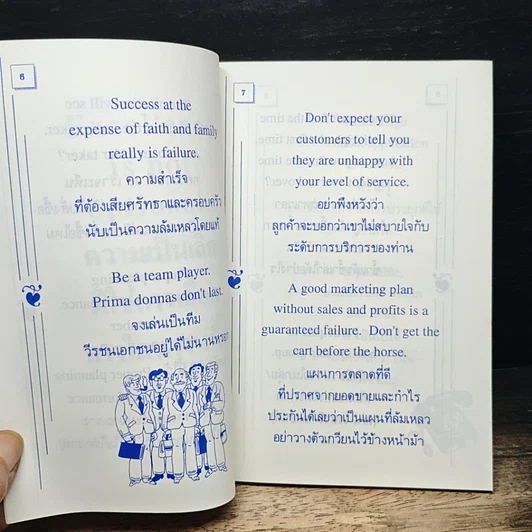 6
Success at the
expense of faith and family
really is failure.
ความสำเร็จ
ที่ต้องเสียศรัทธาและครอบครัว
นับเป็นความล้มเหลวโดยแท้
Be a team player.
Prima donnas don't last.
จงเล่นเป็นทีม
วีรชนเอกชนอยู่ได้ไม่นานหรอก
7
Don't expect your
customers to tell you
they are unhappy with
your level of service.
อย่าพึงหวังว่า
ลูกค้าจะบอกว่าเขาไม่สบายใจกับ
ระดับการบริการของท่าน
A good marketing plan
without sales and profits is a
guaranteed failure. Don't get the
cart before the horse.
แผนการตลาดที่ดี
ที่ปราศจากยอดขายและกำไร
ประกันได้เลยว่าเป็นแผนที่ล้มเหลว
อย่าวางตัวเกวียนไว้ข้างหน้าม้า